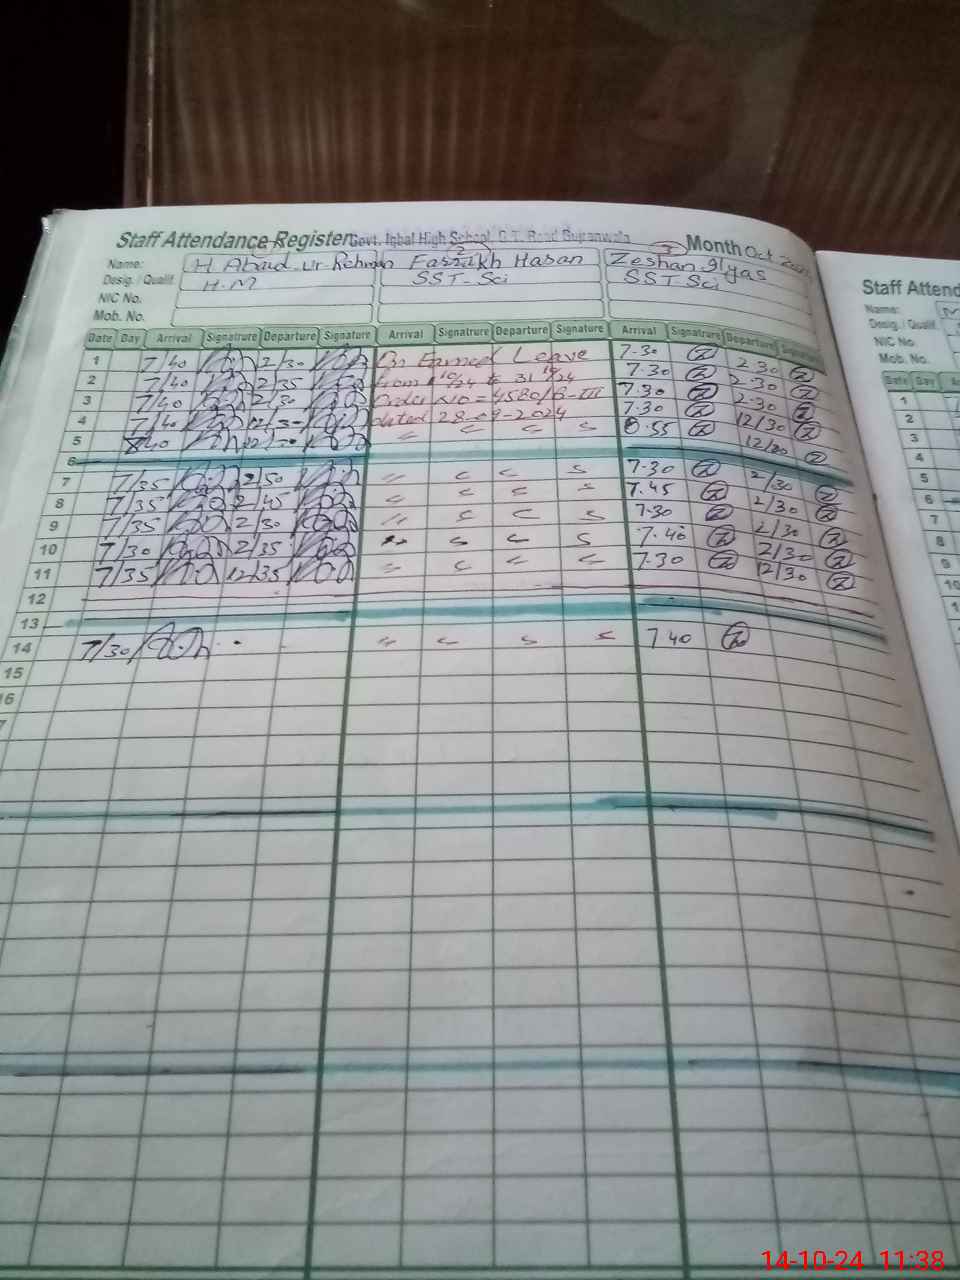 Staff Attendance Register Govt. Iqbal High School, G.T. Road Gujranwala Month Oct
Name: H Abaid-ur-Rehman Farrukh Hasan Zeshan Ilyas
Desig. / Qualif. H.M SST-Sci SST-Sci
NIC No.
Mob. No.
Date Day Arrival Signatrure Departure Signature Arrival Signatrure Departure Signature Arrival Signatrure Departure Signature
1 7/40 2/30 On Earned Leave 7.30 2.30
2 7/40 2/35 from 1 10/24 to 31 10/24 7.30 2.30
3 7/40 2/30 Order No = 4580/B-III 7.30 2.30
4 7/40 12/30 dated 28-09-2024 7.30 12/30
5 8/40 8.55
6
7 7/35 2/50 7.30 2/30
8 7/35 2/45 7.45 2/30
9 7/35 2/30 7.30 2/30
10 7/30 2/35 7.40 2/30
11 7/35 12/35 7.30 12/30
12
13
14 7/30 7.40
15
16
7
Staff Attend
Name:
Desig. / Qualif.
NIC No.
Mob. No.
Date Day
1
2
3
4
5
6
7
8
9
10
11
14-10-24 11:38